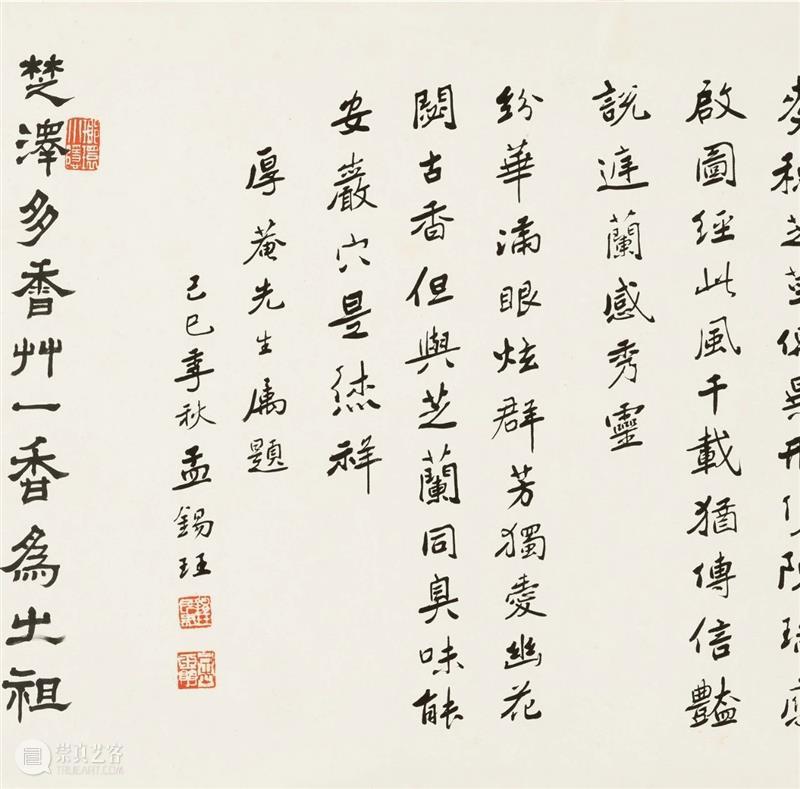 麥穗芝莖俱異形侈陳瑞應
啟圖經此風千載猶傳信豔
說庭蘭感秀靈
紛華滿眼炫群芳獨愛幽花
閟古香但與芝蘭同臭味能
安巖穴是祥
厚菴先生属題
己巳季秋孟錫珏
楚澤多香艸一香為之祖
崇真艺客
TRUEART.COM